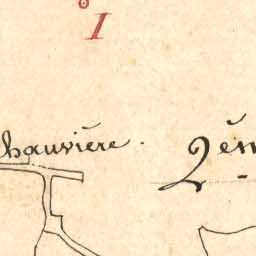 I
hauvière.
2ém